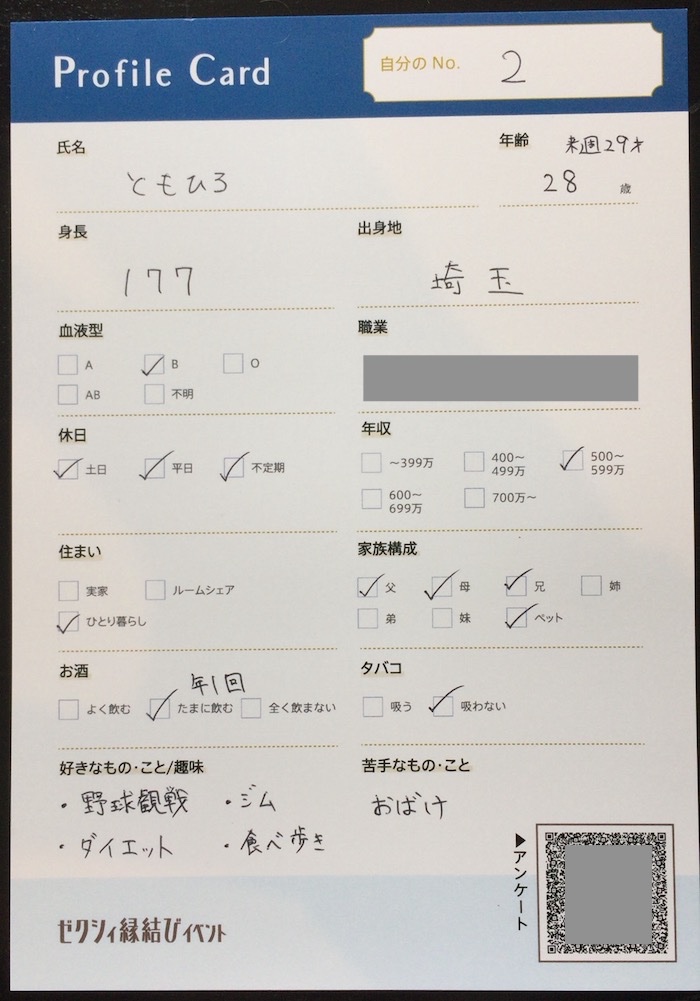 Profile Card
自分のNo. 2
氏名
ともひろ
年齢 来週29才
28 歳
身長
177
出身地
埼玉
血液型
A B O
AB 不明
職業
休日
土日 平日 不定期
年収
～399万 400～499万 500～599万
600～699万 700万～
住まい
実家 ルームシェア
ひとり暮らし
家族構成
父 母 兄 姉
弟 妹 ペット
お酒
年1回
よく飲む たまに飲む 全く飲まない
タバコ
吸う 吸わない
好きなもの・こと/趣味
・野球観戦 ・ジム
・ダイエット ・食べ歩き
苦手なもの・こと
おばけ
▶アンケート
ゼクシィ縁結びイベント